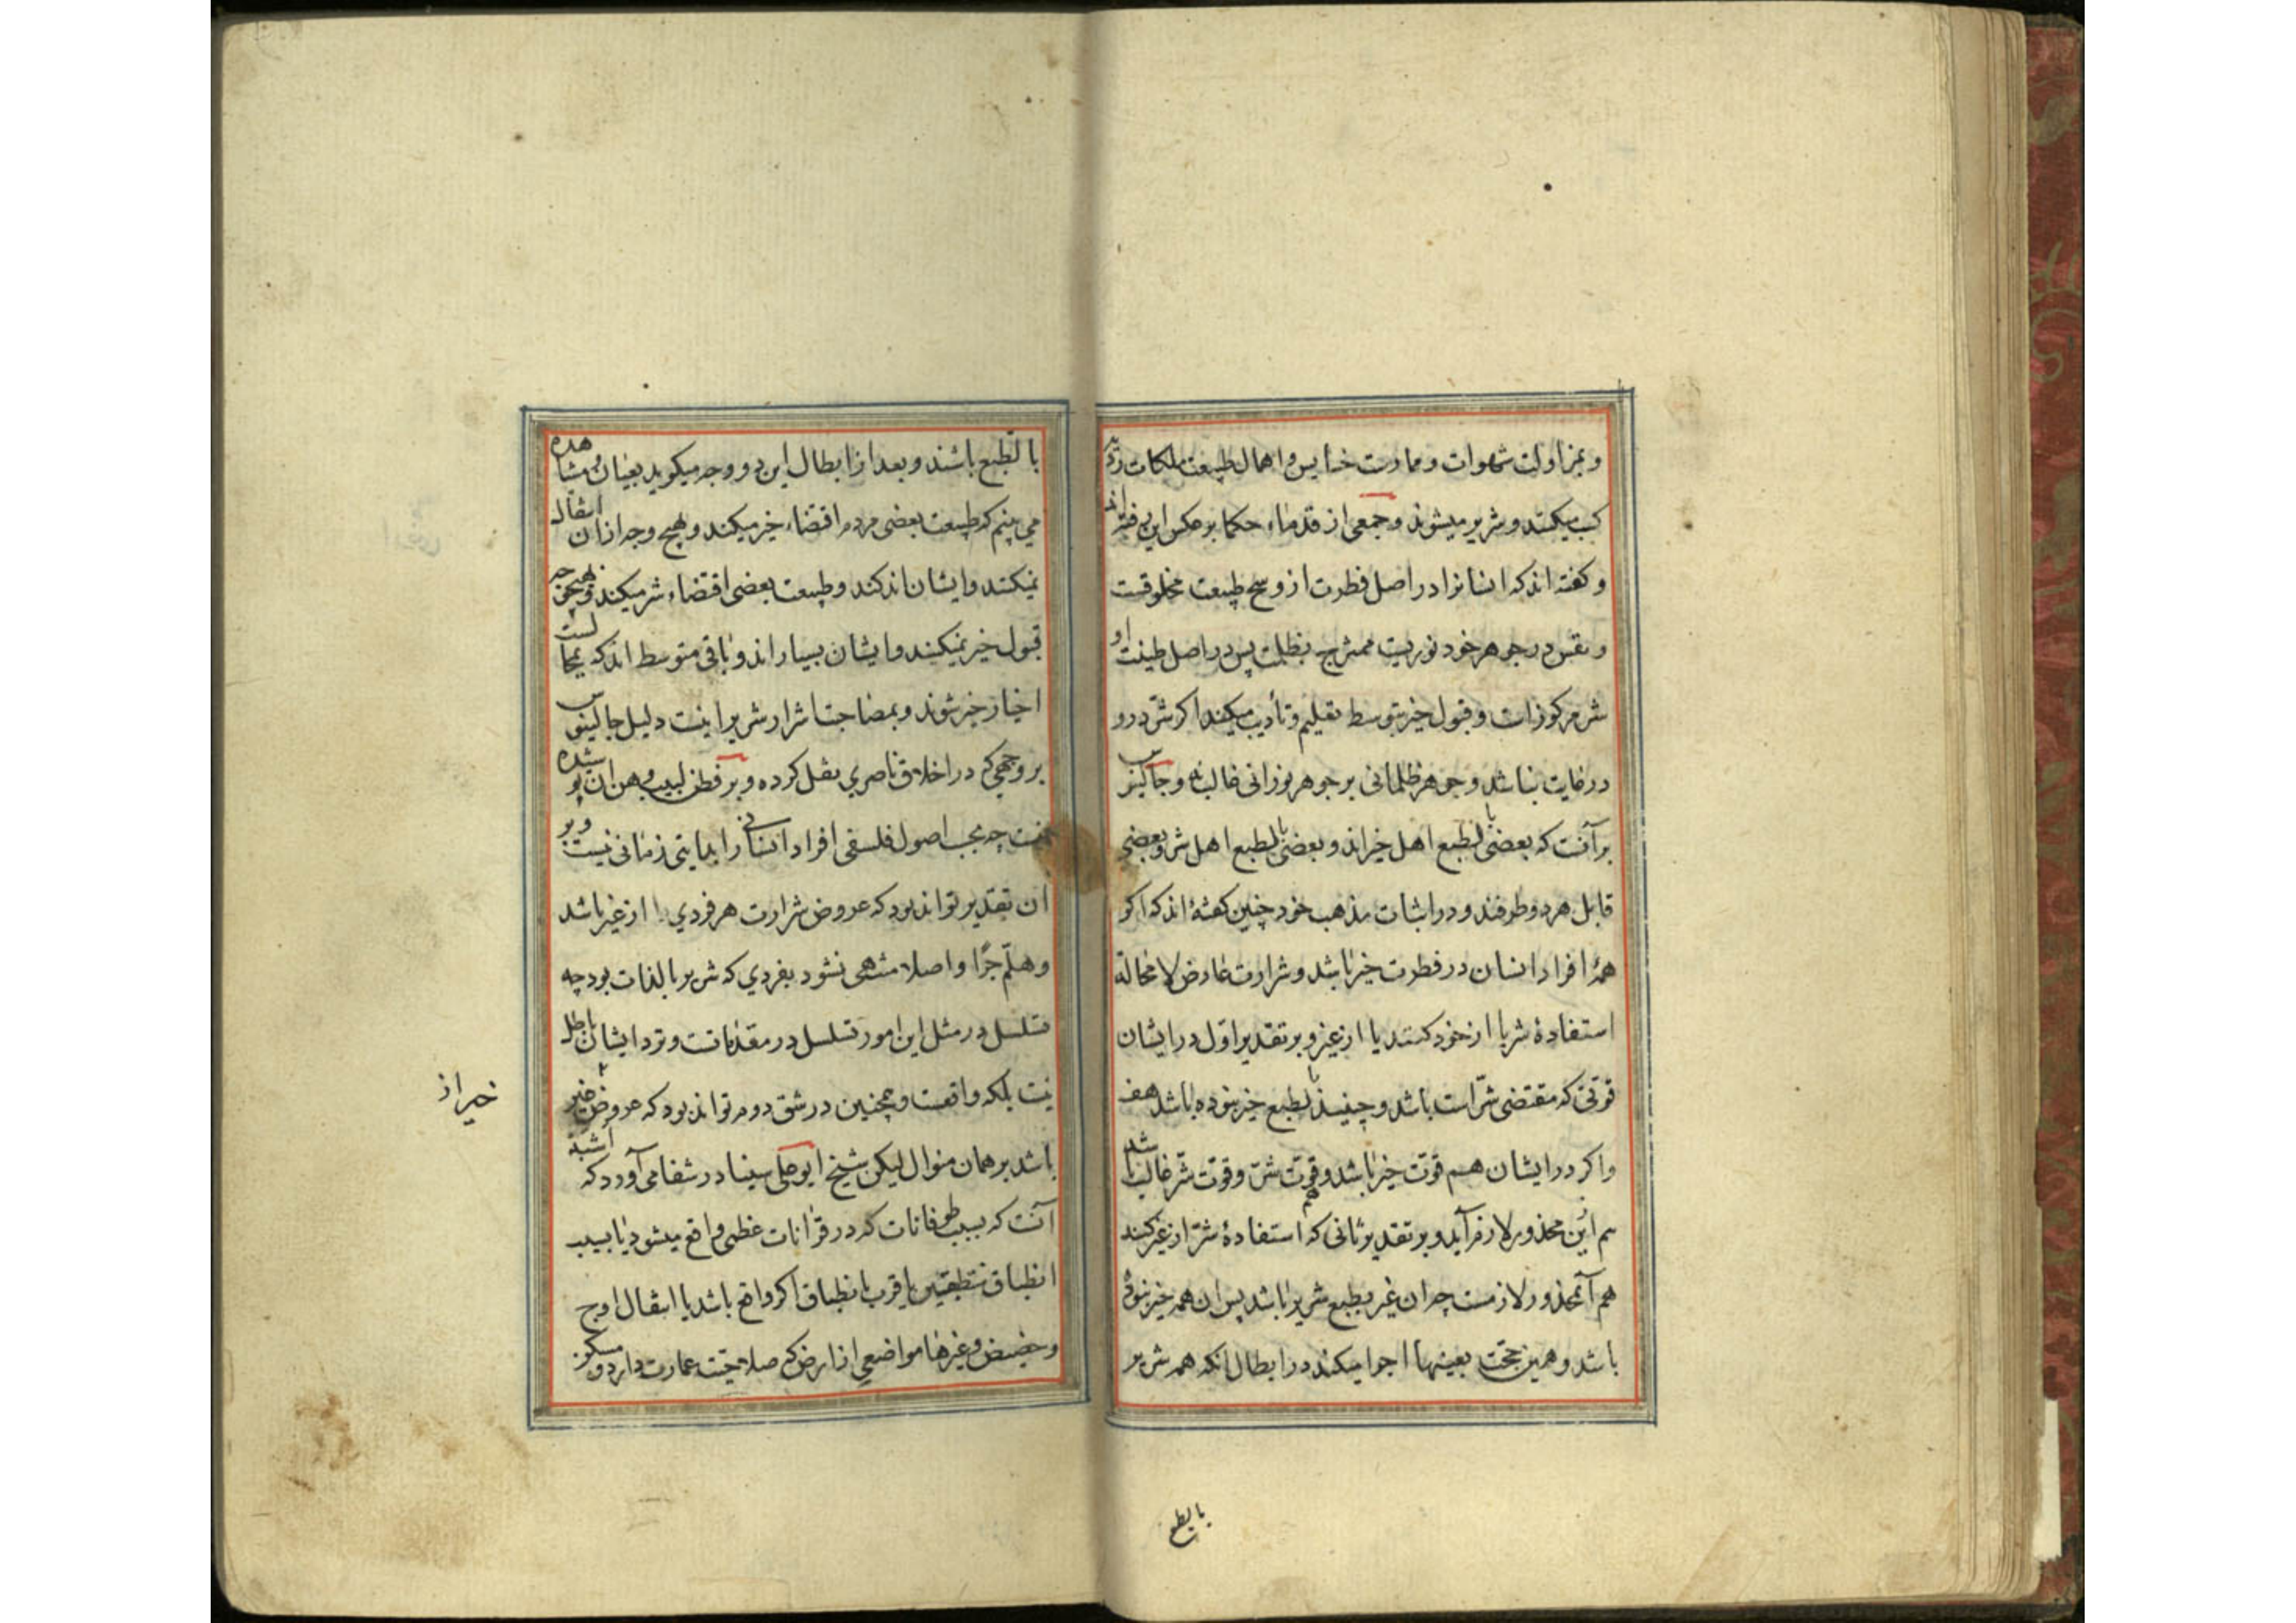 و بمزاولت شهوات و ممارست خسایس و اهمال طبیعت ملکات ردیه
کسب میکنند و شریر میشوند و جمعی از قدماء حکما بر عکس این رفته اند
و کفته اند که انسانرا در اصل فطرت از وسخ طبیعت مخلوقست
و نفس در جوهر خود نوریست ممتزج بظلمت پس در اصل طینت او
شر مرکوزات و قبول خیر بتوسط تعلیم و تأدیب میکند اکر شر درو
در غایت نباشد و جوهر ظلمانی بر جوهر نورانی غالب نه و جالینوس
بر آنست که بعضی بالطبع اهل خیراند و بعضی بالطبع اهل شر و بعضی
قابل هر دو طرفند و در اثبات مذهب خود چنین کفته اند که اکر
همهٔ افراد انسان در فطرت خیر باشد و شرارت عارض لا محالة
استفادهٔ شر یا از خود کنند یا از غیر و بر تقدیر اول در ایشان
قوتی که مقتضی شر است باشد و چنیند بالطبع خیر نبوده باشد هف
و اکر در ایشان هم قوت خیر باشد و هم قوت شر و قوت شر غالب باشد
هم این محذور لازم آید و بر تقدیر ثانی که استفادهٔ شر از غیر کنند
هم آنمحذور لازمست چه ان غیر بطبع شریر باشد پس ان همه خیر نبوده
باشد و همین حجت بعینها اجرا میکند در ابطال انکه همه شریر
بالطبع
بالطبع باشند و بعد از ابطال این دو وجه میکوید بعیان و مشاهده
می بینم که طبیعت بعضی مردم اقتضاء خیر میکند و بهیچ وجه از ان انتقال
نمیکنند و ایشان اندکند و طبیعت بعضی اقتضاء شر میکند و بهیچ وجه
قبول خیر نمیکنند و ایشان بسیار اند و باقی متوسط اند که بمجالست
اخیار خیر شوند و بمصاحبت اشرار شریر اینست دلیل جالینوس
بر وجهی که در اخلاق ناصری نقل کرده و بر فطن لبیب وهن ان پوشیده
نیست چه بحسب اصول فلسفی افراد انسانی را بدایتی زمانی نیست و بر
ان تقدیر تواند بود که عروض شرارت هر فردی را از غیر باشد
و هلّم جرّا و اصلا منتهی نشود بفردی که شریر بالذات بود چه
تسلسل در مثل این امور تسلسل در معداتست و نزد ایشان باطل
نیست بلکه واقعست و همچنین در شق دوم تواند بود که عروض خیر
خیر از
باشد بر همان منوال لیکن شیخ ابو علی سینا در شفا می آورد که اشبه
آنست که بسبب طوفانات که در قرانات عظمی واقع میشود یا بسبب
انطباق منطقتین یا قرب بانطباق اکر واقع باشد یا انتقال اوج
و حضیض و غیرها مواضعی از ارض که صلاحیت عمارت دارد و مسکون